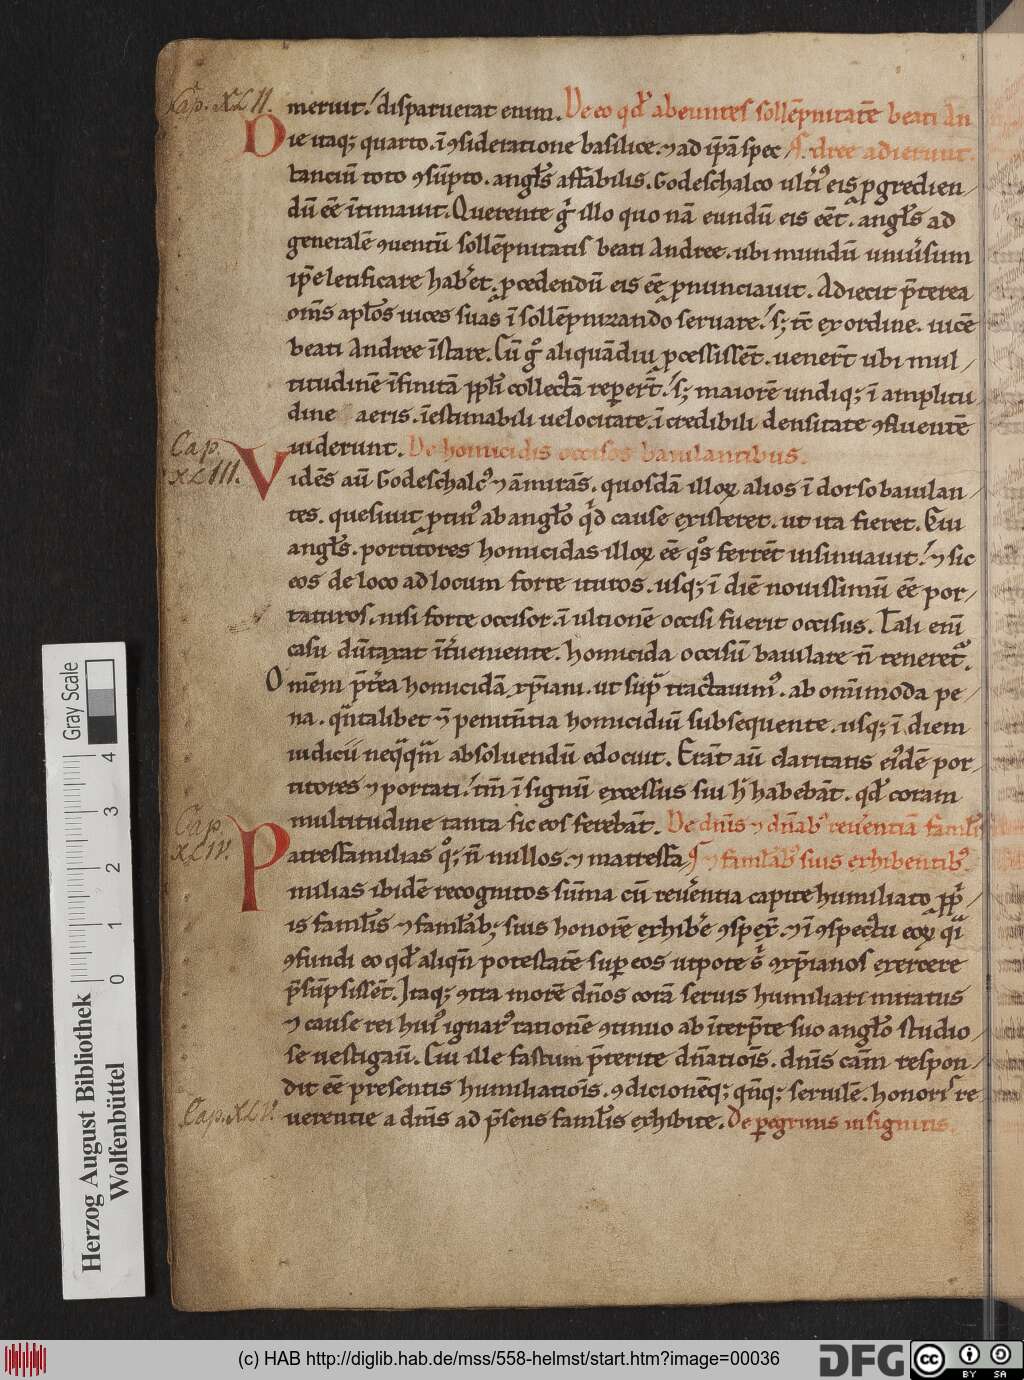 Cap. XLII.
meruit. disparuerat enim. De eo qđ abeuntes sollēpnitatē beati An
Die itaq; quarto. ī ꝯsideratione basilice. ⁊ ad ip̄ā spec dree adierunt.
tanciū toto ꝯsūpto. angl̄s affabilis. Godeschalco ult̓i⁹ eis ꝓgredien
dū eē ītimauit. Querente g̓ illo quo nā eundū eis eēt. angl̄s ad
generalē ꝯuentū sollēpnitatis beati Andree. ubi mundū uniu̓sum
ip̄e letificare hab̓et. ꝓcedendū eis eē ꝓnunciauit. Adiecit p̄terea
om̄s apl̄os uices suas ī sollēpnizando seruare. s; tc̄ ex ordine. uicē
beati Andree īstare. Cū g̊ aliquādiu ꝓcessissēt. uener̄t ubi mul
titudinē īfinitā ppl̓i collectā reper̄t. s; maiorē undiq; ī amplitu
dine aeris. īestimabili uelocitate. īcredibili densitate ꝯfluentē
Cap. XLIII.
uiderunt. De homicidis occisos baiulantibus.
Vidēs aū Godeschalc⁹ ⁊ āmirās. quosdā illoꝝ alios ī dorso baiulan
tes. quesiuit ꝓtin⁹ ab angl̄o q̓d cause existeret. ut ita fieret. Cui
angl̄s. portitores homicidas illoꝝ eē q̊s ferrēt insinuauit. ⁊ sic
eos de loco ad locum forte ituros. usq; ī diē nouissimū eē por
taturos. nisi forte occisor. ī ultionē occisi fuerit occisus. Tali eni̅
casu dūtaxat īt̓ueniente. homicida occisū baiulare n̄ teneret⁹.
Omēm p̄t̓ea homicidā xp̄ianū. ut sup̄ tractauim⁹. ab om̄imoda pe
na. qn̄talibet ⁊ penitn̄tia homicidiū subsequente. usq; ī diem
iudicii neq̄q̄m absoluendū edocuit. Erāt aū claritatis ei⁹dē por
titores ⁊ portati. tm̄ ī signū excessus sui h̓ habebāt. qđ coram
multitudine tanta sic eos ferebāt. De dn̄is ⁊ dn̄ab⁹ reu̓entiā famil̄is
Cap. XLIV.
Patresfamilias q̊; n̄ nullos. ⁊ matresfa ⁊ famlāb⁹ suis exhibentib⁹.
milias ibidē recognitos sūma cū reu̓entia capite humiliato ꝓp̓
is faml̄is ⁊ faml̄ab; suis honorē exhib̓e ꝯspex̄. ⁊ ī ꝯspectu eoꝝ q̄i
ꝯfundi eo qđ aliqn̄ potestatē super eos utpote s̓ xp̄ianos exercere
p̄sūpsissēt. Itaq; ꝯtra morē dn̄os corā seruis humiliari miratus
⁊ cause rei hui⁹ ignar⁹ rationē ꝯtinuo ab īterp̄te suo angl̄o studio
se uestigaū. Cui ille fastum p̄terite dn̄atiois̄. dn̄is cām respon
dit eē presentis humiliatiois̄. ꝯdicionēq; qn̄q; seruilē. honoris re
Cap. XLV.
uerentie a dn̄is ad p̄sens faml̄is exhibite. De peregrinis insignitis.
Gray Scale
0 1 2 3 4
Herzog August Bibliothek
Wolfenbüttel
(c) HAB http://diglib.hab.de/mss/558-helmst/start.htm?image=00036
DFG
cc BY SA